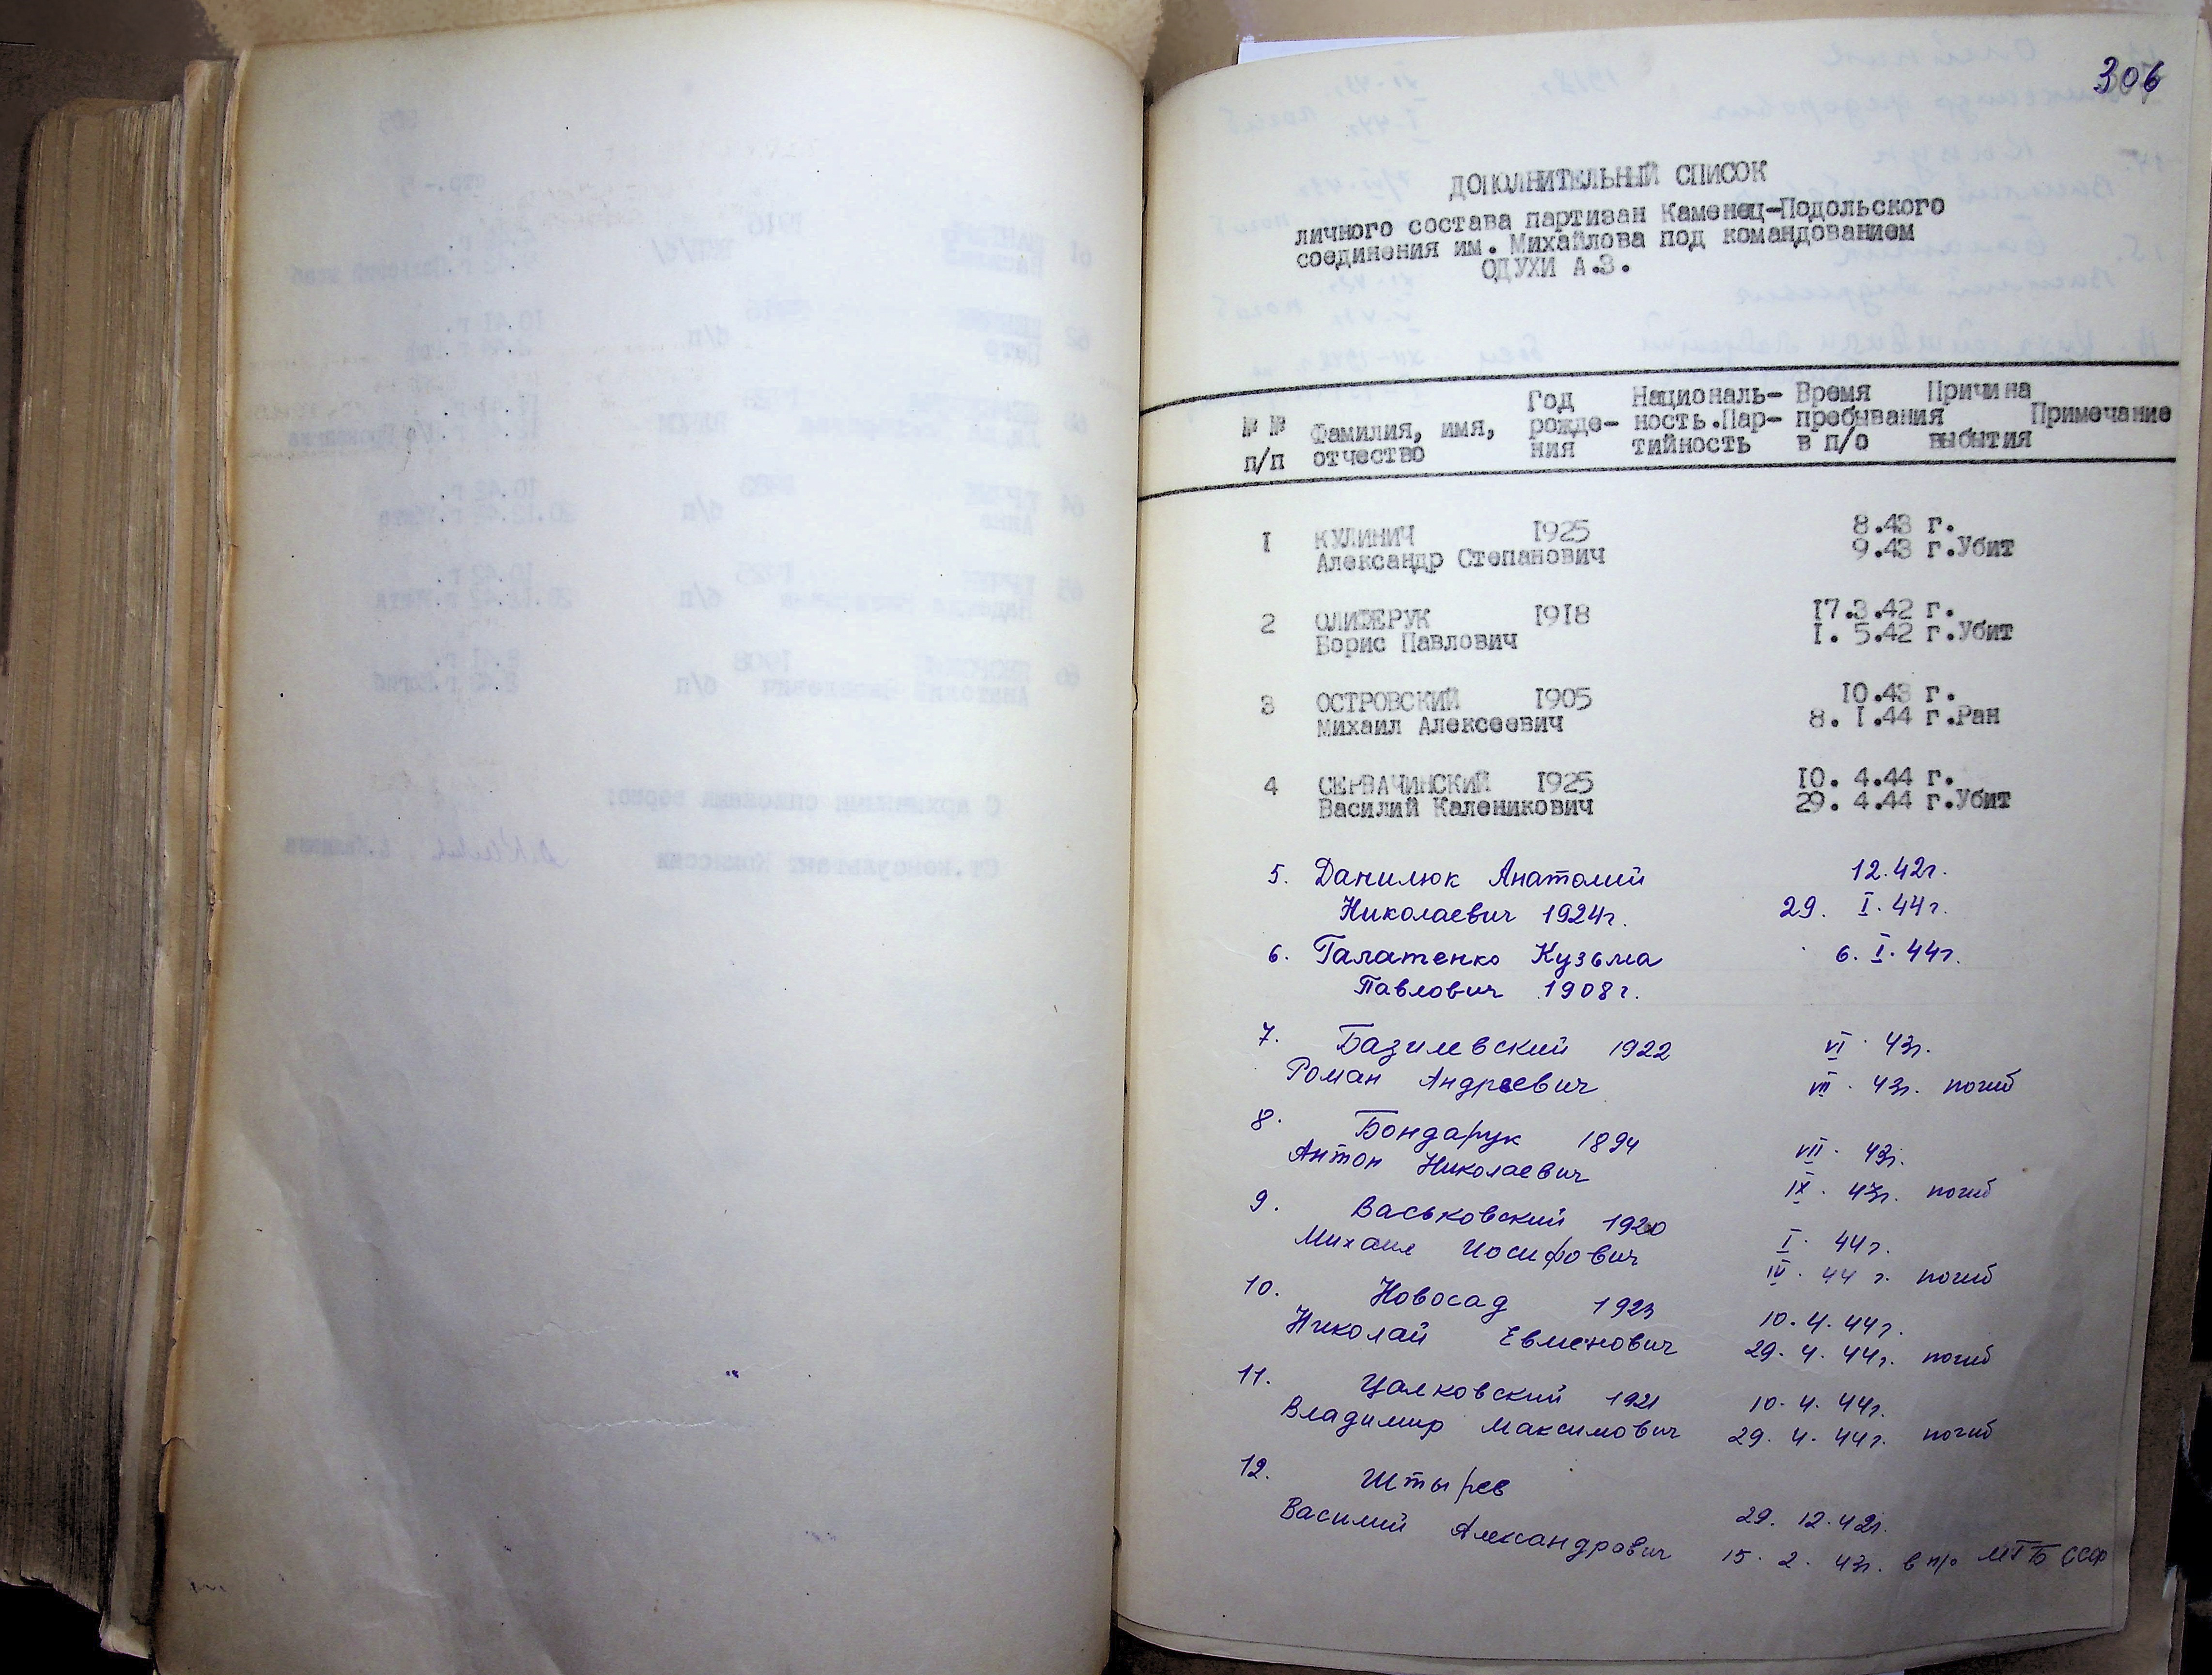 306
ДОПОЛНИТЕЛЬНЫЙ СПИСОК
личного состава партизан Каменец-Подольского
соединения им. Михайлова под командованием
ОДУХИ А.З.
№ № п/п
Фамилия, имя, отчество
Год рожде- ния
Националь- ность.Пар- тийность
Время пребывания в п/о
Причина выбытия
Примечание
1 КУЛИНИЧ 1925 8.43 г.
Александр Степанович 9.43 г.Убит
2 ОЛИЖЕРУК 1918 17.3.42 г.
Борис Павлович 1. 5.42 г.Убит
3 ОСТРОВСКИЙ 1905 10.43 г.
Михаил Алексеевич 8. 1.44 г.Ран
4 СЕРВАЧИНСКИЙ 1925 10. 4.44 г.
Василий Каленикович 29. 4.44 г.Убит
5. Данилюк Анатолий 12.42г.
Николаевич 1924г. 29. I.44г.
6. Галатенко Кузьма 6. I.44г.
Павлович 1908г.
7. Базилевский 1922 VI. 43г.
Роман Андреевич VII. 43г. погиб
8. Бондарук 1894 VII. 43г.
Антон Николаевич IX. 43г. погиб
9. Васьковский 1920 I. 44г.
Михаил Иосифович IV. 44 г. погиб
10. Новосад 1923 10.4.44г.
Николай Евменович 29. 4. 44г. погиб
11. Цалковский 1921 10. 4. 44г.
Владимир Максимович 29. 4. 44г. погиб
12. Штырев 29. 12.42г.
Василий Александрович 15. 2. 43г. в п/о МГБ СССР